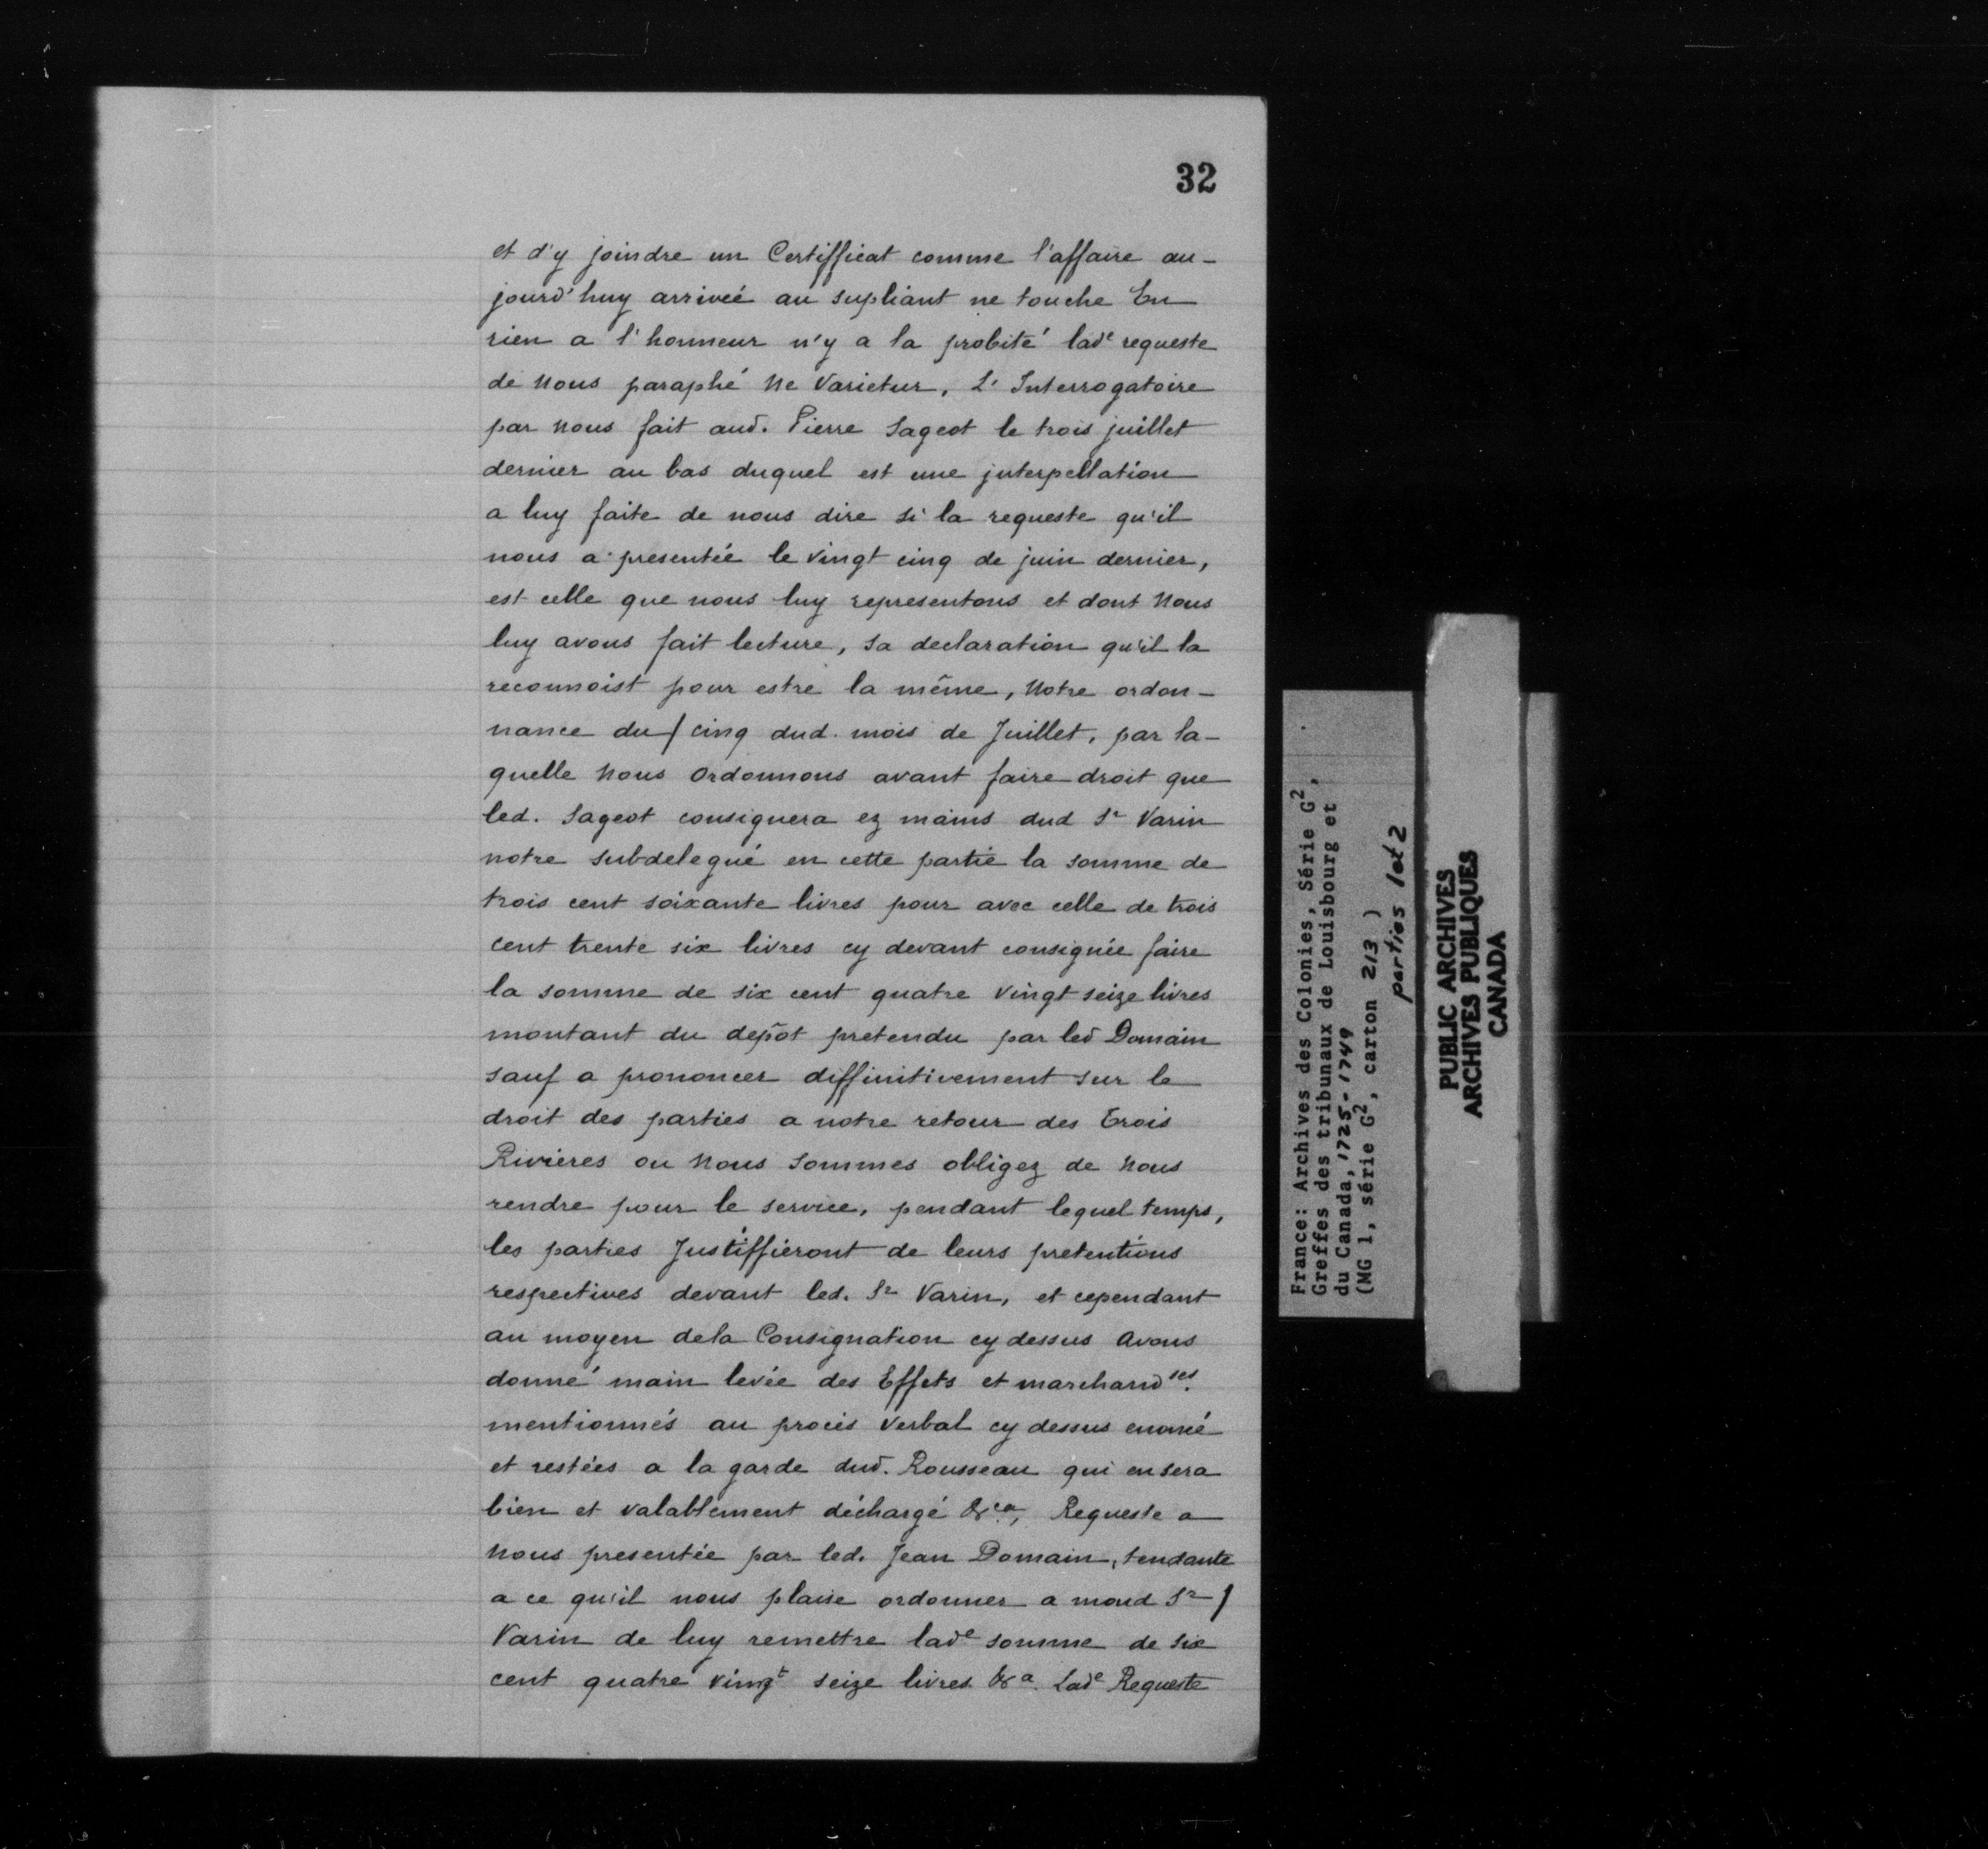 32
et d'y joindre un Certifficat comme l'affaire au-
jourd'huy arriveé au supliant ne touche En
rien a l'honneur n'y a la probité lade requeste
de nous paraphé Ne Varietur, L'Interrogatoire
par nous fait aud. Pierre Sageot le trois juillet
dernier au bas duquel est une jnterpellation
a luy faite de nous dire si la requeste qu'il
nous a presentée le vingt cinq de juin dernier,
est celle que nous luy representons et dont Nous
luy avons fait lecture, Sa declaration qu'il la
reconnoist pour estre la même, Notre ordon-
nance du / cinq dud. mois de Juillet, par la-
quelle Nous Ordonnons avant faire droit que
led. Sageot consignera ez mains dud Sr Varin
notre subdelegué en cette partie la somme de
trois cent soixante livres pour avec celle de trois
cent trente six livres cy devant consignée faire
la somme de six cent quatre vingt seize livres
montant du depôt pretendu par led Domain
sauf a prononcer diffinitivement sur le
droit des parties a notre retour des Trois
Rivieres ou Nous Sommes obligez de Nous
rendre pour le service, pendant lequel temps,
les parties Justiffieront de leurs pretentions
respectives devant led. Sr Varin, et cependant
au moyen dela Consignation cy dessus Avons
donné main levée des Effets et marchandses.
mentionnés au procès Verbal cy dessus enoncé
et restées a la garde dud. Rousseau qui en sera
bien et valablement déchargé &ca, Requeste a
Nous presentée par led. Jean Domain, tendante
a ce qu'il nous plaise ordonner a mond Sr /
Varin de luy remettre lade somme de Six
cent quatre vingt seize livres &a. Lade Requeste
France: Archives des Colonies, Série G2,
Greffes des tribunaux de Louisbourg et
du Canada, 1725-1749
(MG 1, série G2, carton 213 )
parties 1 et 2
PUBLIC ARCHIVES
ARCHIVES PUBLIQUES
CANADA